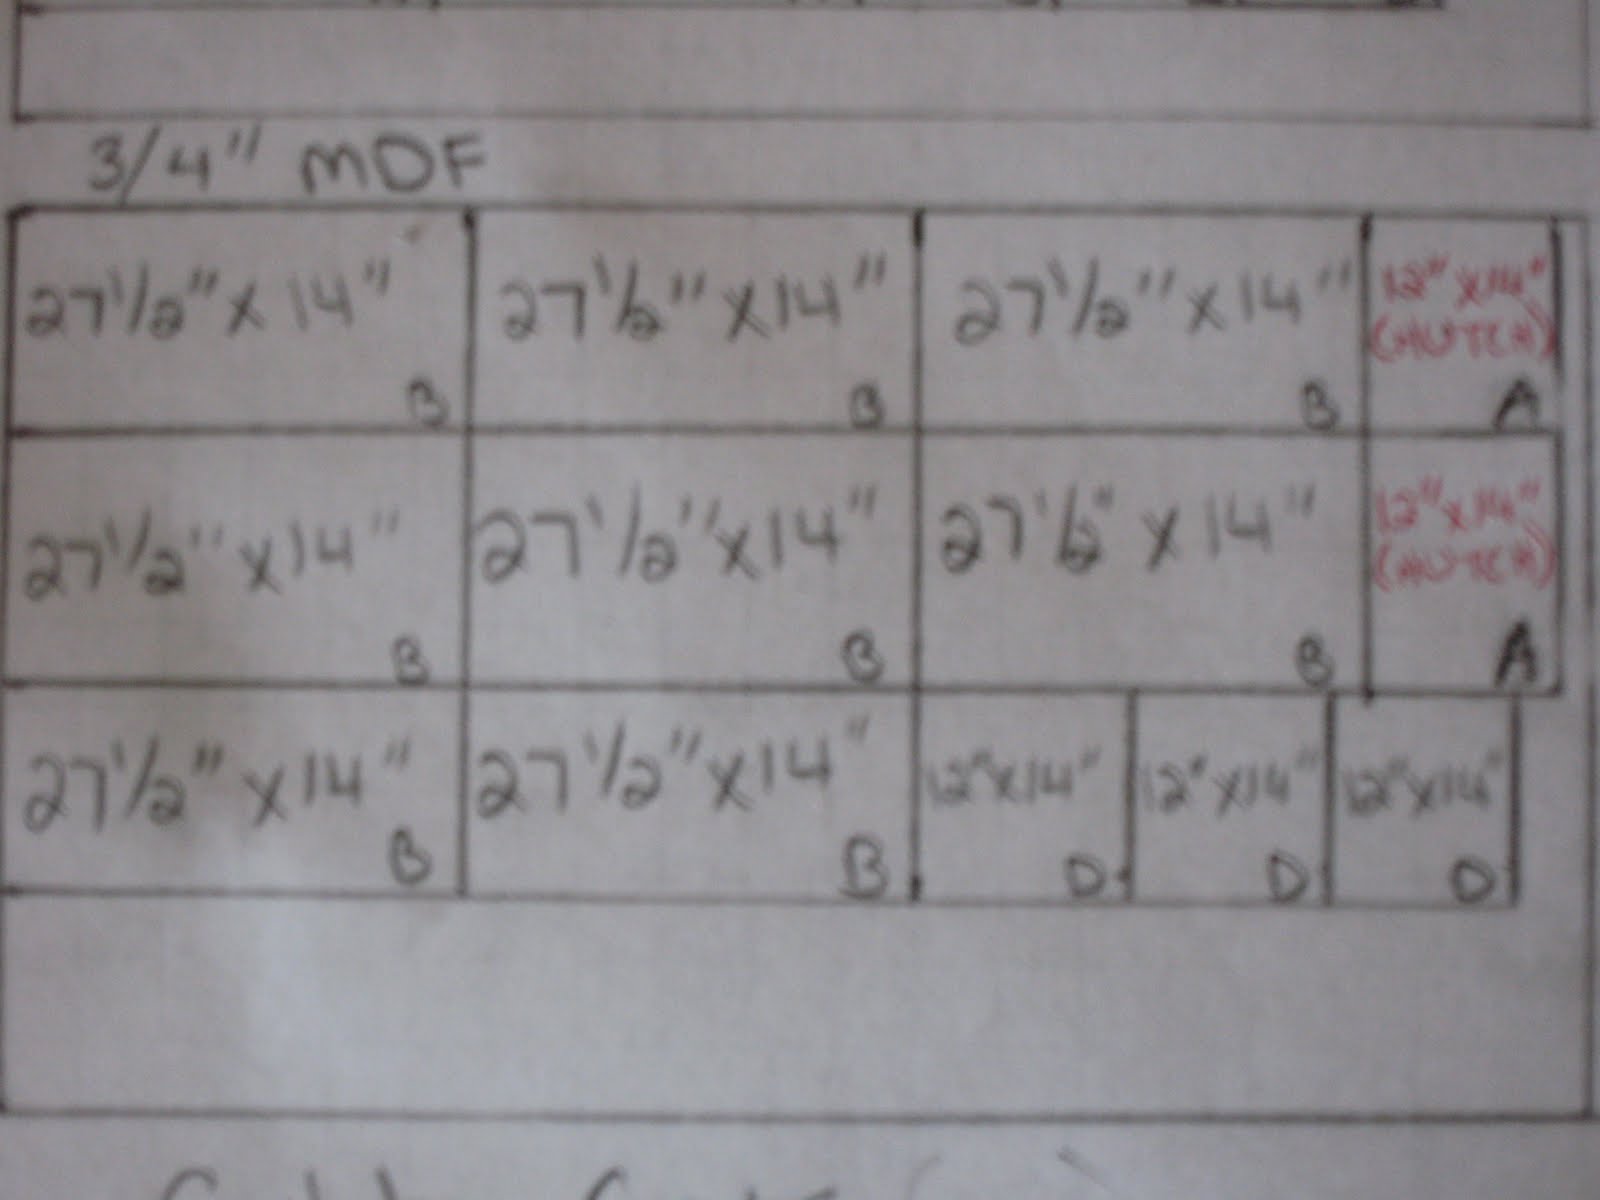 3/4" MDF
27 1/2" x 14" 27 1/2" x 14" 27 1/2" x 14" 12" x 14"
(HUTCH)
B B B A
27 1/2" x 14" 27 1/2" x 14" 27 1/2" x 14" 12" x 14"
(HUTCH)
B B B A
27 1/2" x 14" 27 1/2" x 14" 12" x 14" 12" x 14" 12" x 14"
B B D D D